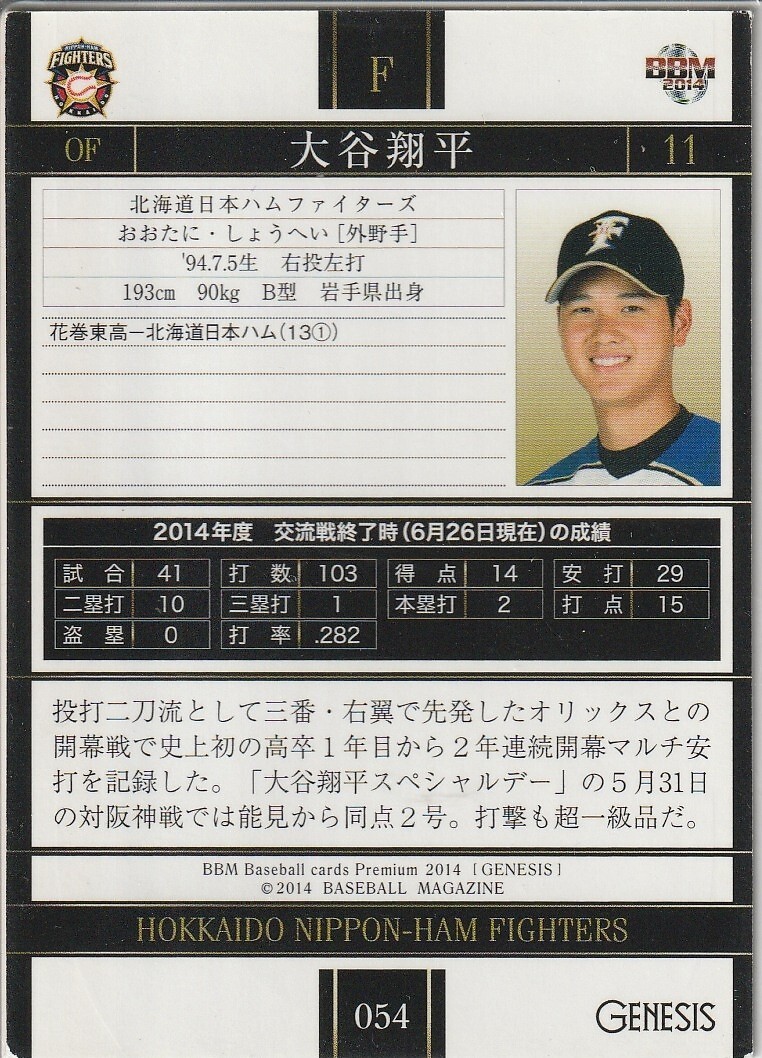 NIPPON-HAM
FIGHTERS
F
BBM
2014
OF 大谷翔平 11
北海道日本ハムファイターズ
おおたに・しょうへい［外野手］
'94.7.5生 右投左打
193cm 90kg B型 岩手県出身
花巻東高－北海道日本ハム(13①)
F
2014年度 交流戦終了時(6月26日現在)の成績
試合 41 打数 103 得点 14 安打 29
二塁打 10 三塁打 1 本塁打 2 打点 15
盗塁 0 打率 .282
投打二刀流として三番・右翼で先発したオリックスとの
開幕戦で史上初の高卒１年目から２年連続開幕マルチ安
打を記録した。「大谷翔平スペシャルデー」の５月31日
の対阪神戦では能見から同点２号。打撃も超一級品だ。
BBM Baseball cards Premium 2014 [GENESIS]
©2014 BASEBALL MAGAZINE
HOKKAIDO NIPPON-HAM FIGHTERS
054
GENESIS